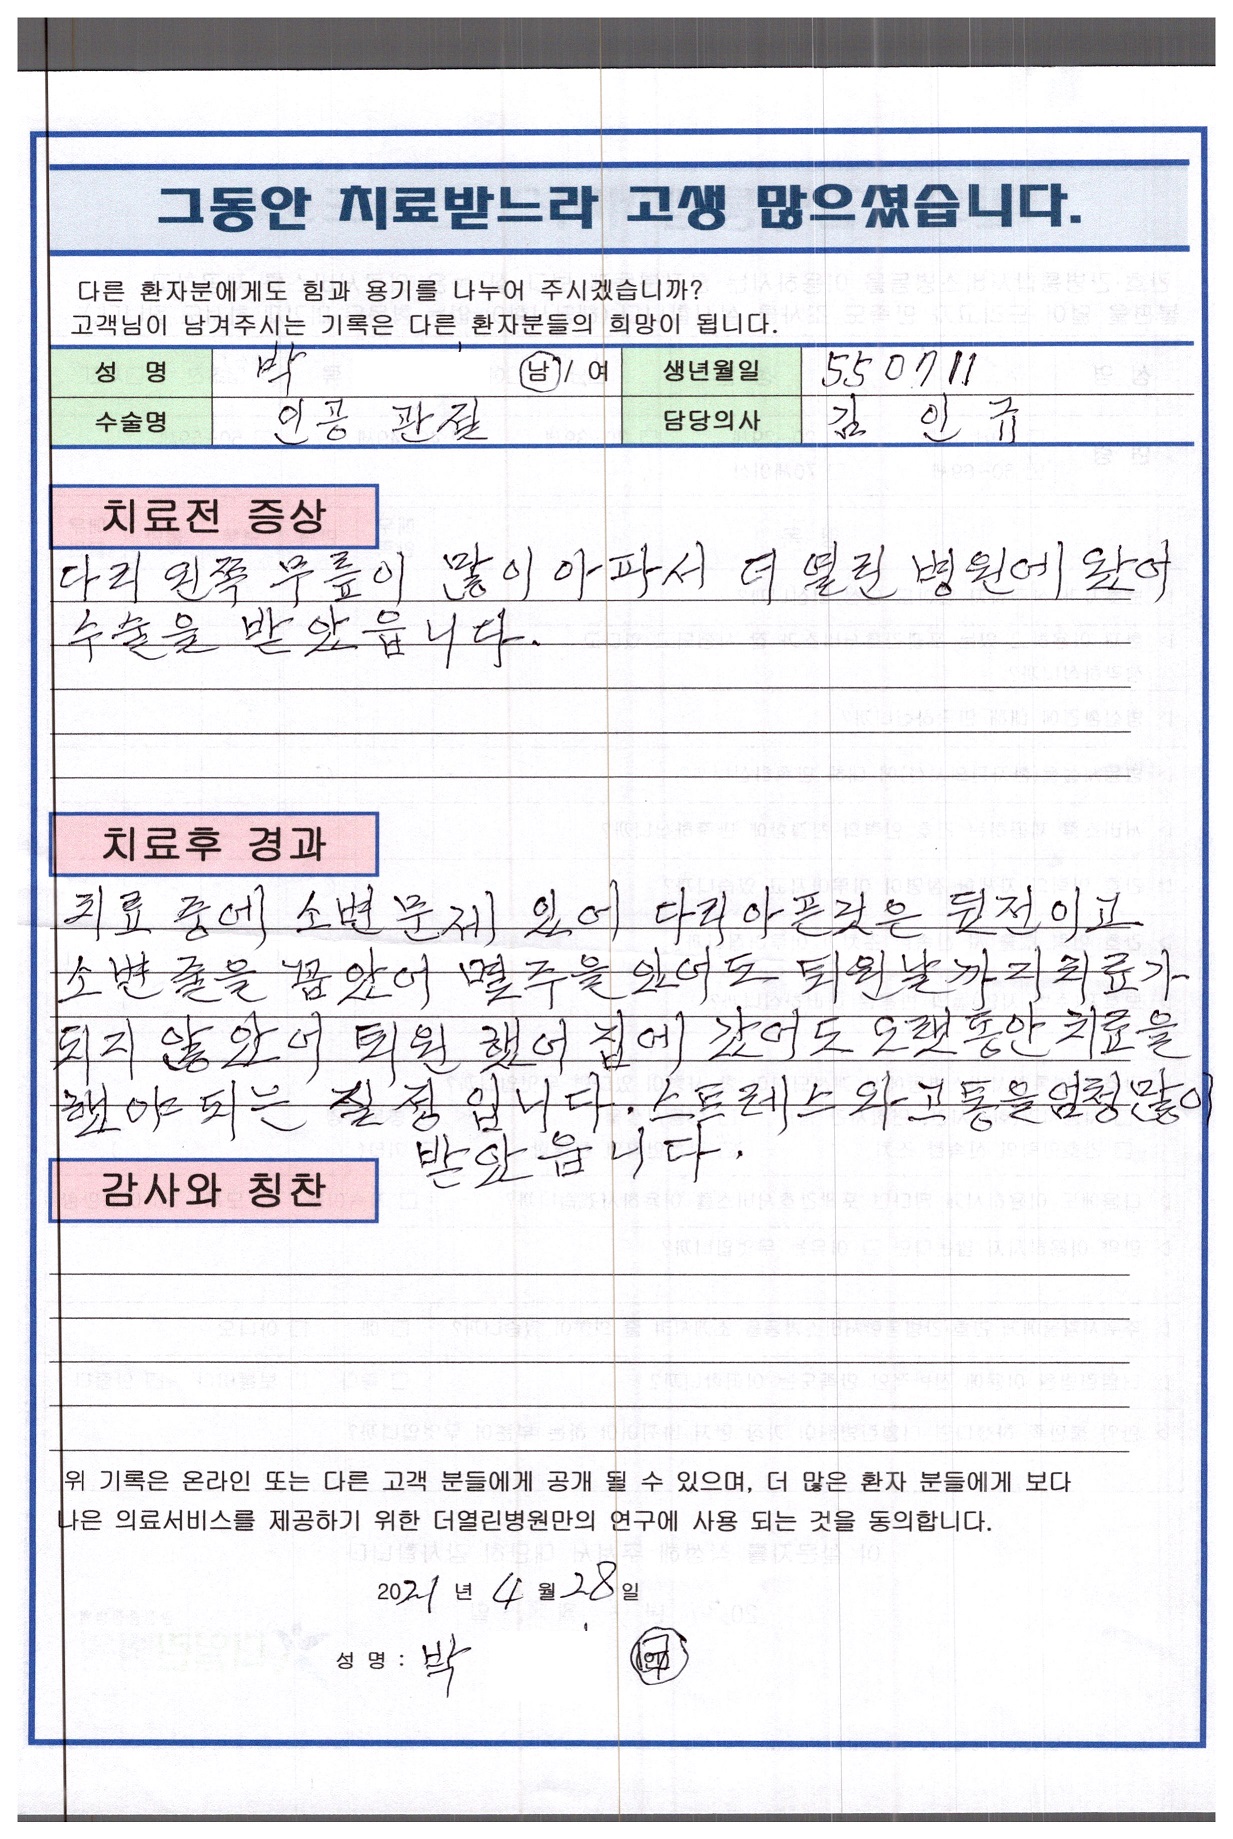 그동안 치료받느라 고생 많으셨습니다.
다른 환자분에게도 힘과 용기를 나누어 주시겠습니까?
고객님이 남겨주시는 기록은 다른 환자분들의 희망이 됩니다.
성 명 박 남 / 여 생년월일 550711
수술명 인공 관절 담당의사 김 인 규
치료전 증상
다리 왼쪽 무릎이 많이 아파서 더 열린 병원에 왔어
수술을 받았읍니다.
치료후 경과
치료 중에 소변문제 있어 다리아픈것은 뒷전이고
소변줄을 꼽았어 몇주을 있어도 퇴원날까지 치료가
되지 않았어 퇴원했어 집에 갔어도 오랫동안 치료을
했야 되는 실정입니다. 스트레스와 고통을 엄청많이
받았읍니다.
감사와 칭찬
위 기록은 온라인 또는 다른 고객 분들에게 공개 될 수 있으며, 더 많은 환자 분들에게 보다
나은 의료서비스를 제공하기 위한 더열린병원만의 연구에 사용 되는 것을 동의합니다.
2021 년 4 월 28 일
성 명 : 박